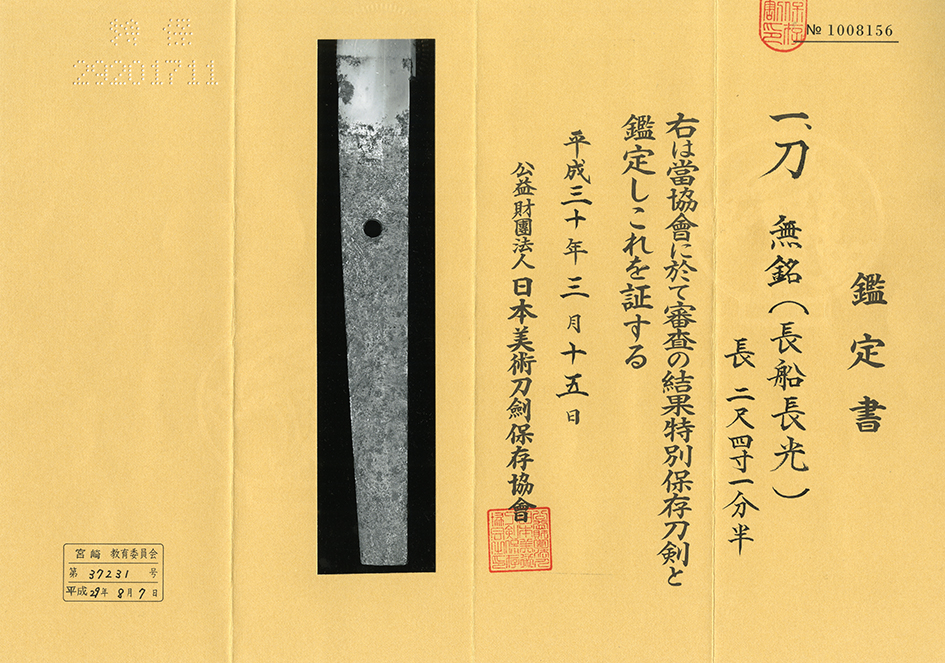 № 1008156
鑑定書
一、刀 無銘(長船長光)
長 二尺四寸一分半
右は當協會に於て審査の結果特別保存刀劍と
鑑定しこれを証する
平成三十年三月十五日
公益財團法人日本美術刀劍保存協會
29201711
宮崎 教育委員会
第 37231 号
平成29年8月7日